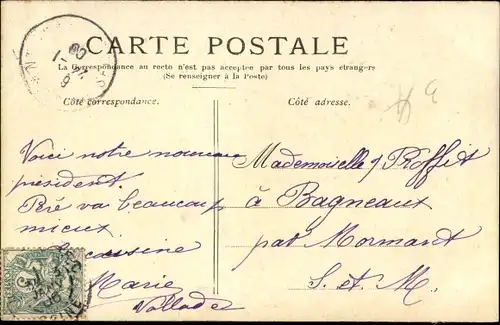 CARTE POSTALE
La Correspondance au recto n'est pas acceptée par tous les pays étrangers
(Se renseigner à la Poste)
Côté correspondance.
Côté adresse.
Voici notre nouveau
président.
va beaucoup
mieux
cousine
Marie
Mademoiselle J Roffit
à Bagneaux
par Mormant
S. et M.